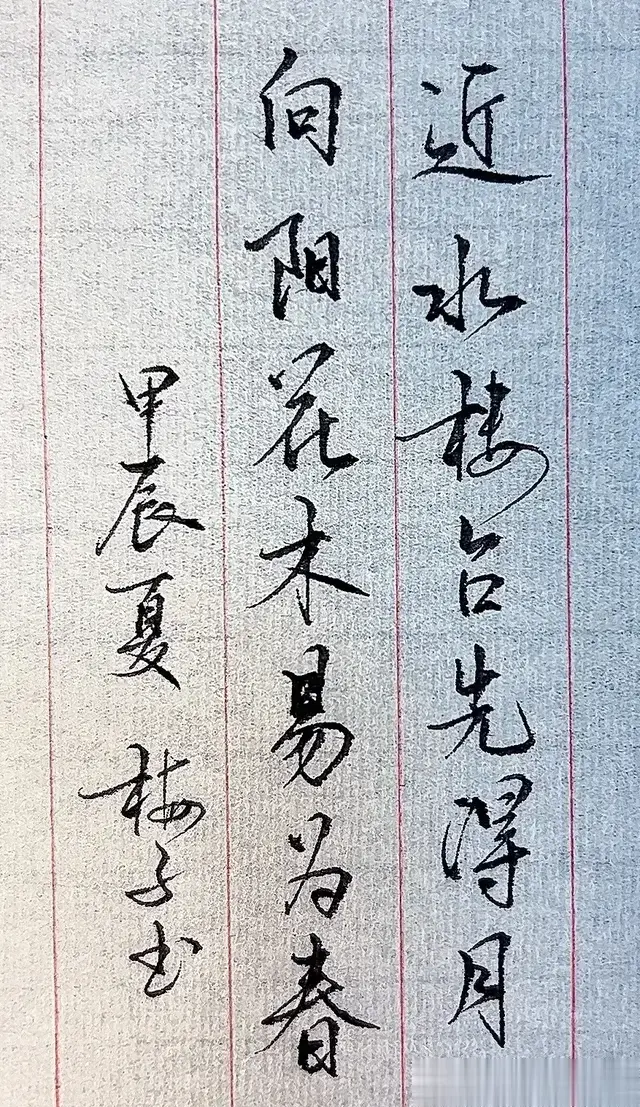 近水楼台先得月
向阳花木易为春
甲辰夏 梅子书